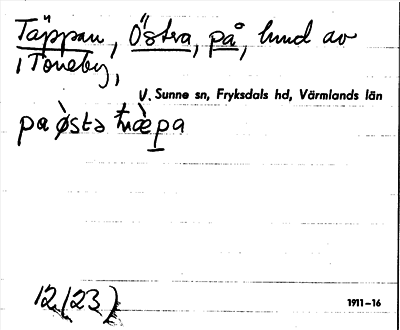 Täppan, Östra, på, lund av
i Toneby,
V. Sunne sn, Fryksdals hd, Värmlands län
pa østə tæpa
12 (23)
1911-16